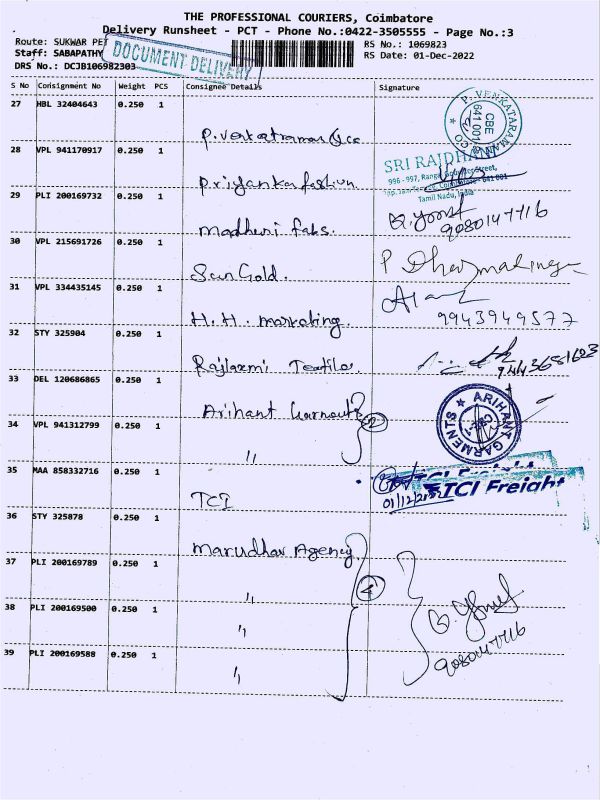 THE PROFESSIONAL COURIERS, Coimbatore
Delivery Runsheet - PCT - Phone No.:0422-3505555 - Page No.:3
Route: SUKWAR PET
RS No.: 1069823
Staff: SABAPATHY
RS Date: 01-Dec-2022
DRS No.: DCJB106982303
DOCUMENT DELIVERY
S No Consignment No Weight PCS Consignee Details Signature
27 HBL 32404643 0.250 1
P. Venkatraman & co
P. VENKATARAMAN & CO
CBE
641 001
28 VPL 941170917 0.250 1
Priyanka fashion
SRI RAJDHANI
996 - 997, Range Gounder Street,
Coimbatore - 641 001
Tamil Nadu, India
29 PLI 200169732 0.250 1
Madhuri fabs.
9080147716
30 VPL 215691726 0.250 1
Sun Gold.
P Dharmalinga
31 VPL 334435145 0.250 1
H. H. Marketing
9943949577
32 STY 325904 0.250 1
Rajlaxmi Textiles
9443681603
33 DEL 120686865 0.250 1
Arihant Garments
ARIHANT GARMENTS
34 VPL 941312799 0.250 1
〃
2
35 MAA 858332716 0.250 1
TCI
TCI Freight
TCI Freight
36 STY 325878 0.250 1
Marudhar Agency
37 PLI 200169789 0.250 1
〃
4
38 PLI 200169500 0.250 1
〃
9080147716
39 PLI 200169588 0.250 1
〃